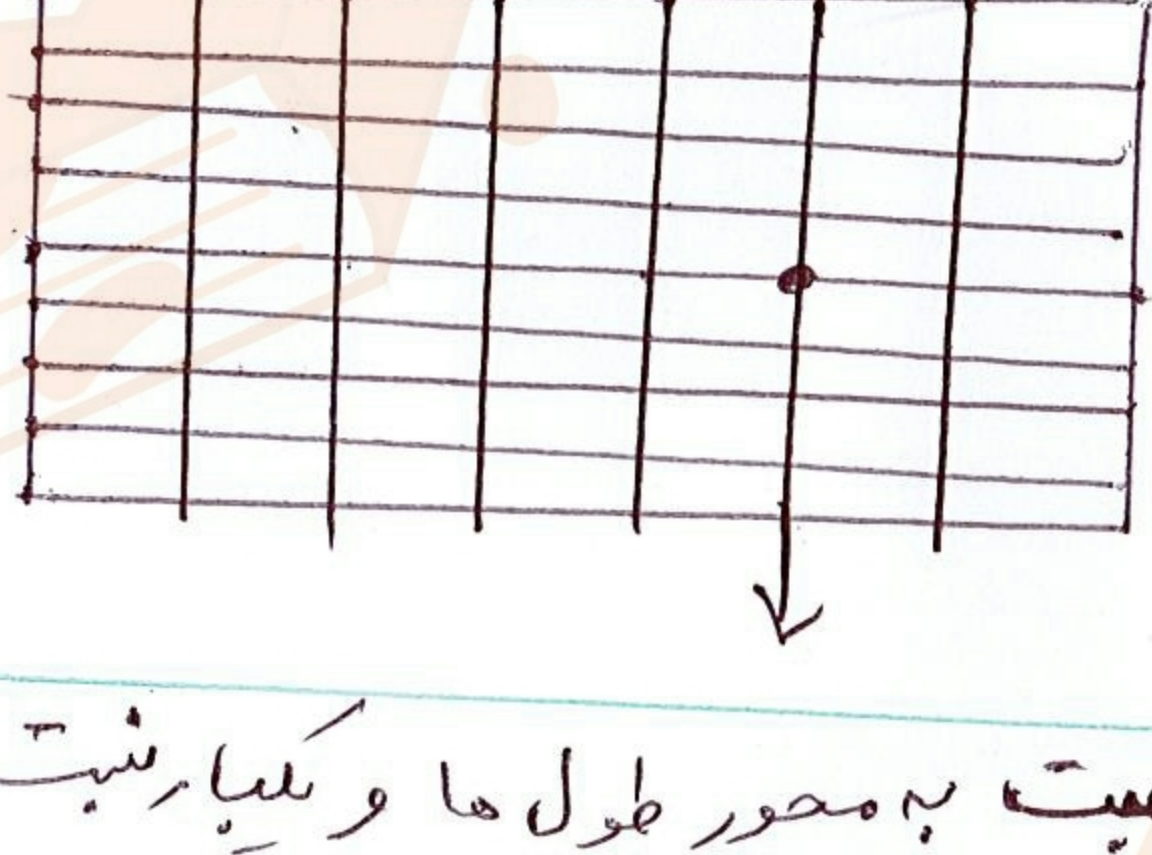 به محور طول ها و یکبار نسبت